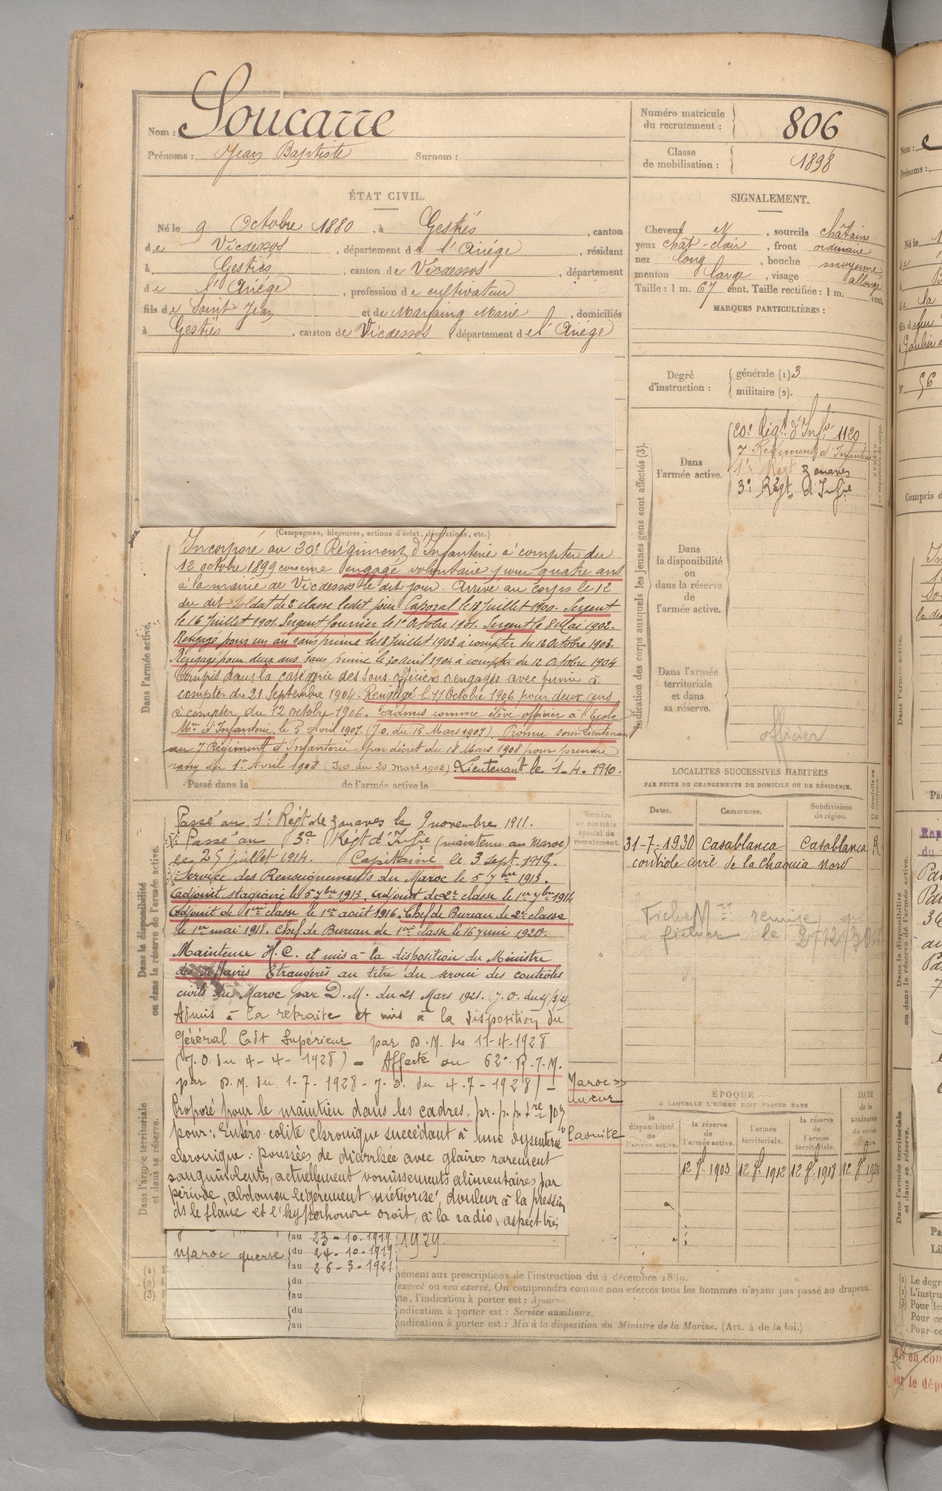 Nom : Soucarre
Prénoms : Jean Baptiste Surnom :
Numéro matricule du recrutement : 806
Classe de mobilisation : 1898
ÉTAT CIVIL.
Né le 9 Octobre 1880, à Gestiès, canton
de Vicdessos, département de l'Ariége, résidant
à Gestiès, canton de Vicdessos, département
de l'Ariége, profession de cultivateur
fils de Saint Jean et de Marie, domiciliés
à Gestiès, canton de Vicdessos département de l'Ariége
SIGNALEMENT.
Cheveux N, sourcils châtains
yeux chât-clair, front ordinaire
nez long, bouche moyenne
menton large, visage allongé
Taille : 1 m. 67 cent. Taille rectifiée : 1 m. cent.
MARQUES PARTICULIÈRES :
Degré d'instruction : générale (1) 3
militaire (2).
Indication des corps auxquels les jeunes gens sont affectés (3).
Dans l'armée active.
20e Régt d'Infie 1120
7 Régiment d'Infanterie
1er Régt zouaves
3e Régt d'Infie
Dans la disponibilité ou dans la réserve de l'armée active.
Dans l'armée territoriale et dans sa réserve.
officier
(Campagnes, blessures, actions d'éclat, décorations, etc.)
Dans l'armée active.
Incorporé au 20e Régiment d'Infanterie à compter du
12 octobre 1899 comme engagé volontaire pour quatre ans
à la mairie de Vicdessos le dit jour Arrivé au corps le 12
du dit Soldat de 2e classe ledit jour Caporal le 18 Juillet 1900. Sergent
le 16 Juillet 1901. Sergent fourrier le 1er Octobre 1901. Sergent le 8 Mai 1902.
Rengagé pour un an sans prime le 18 Juillet 1903 à compter du 12 Octobre 1903.
Rengagé pour deux ans sans prime le 30 avril 1904 à compter du 12 Octobre 1904
Compris dans la catégorie des sous officiers rengagés avec prime à
compter du 21 Septembre 1904. Rengagé le 11 Octobre 1906 pour deux ans
à compter du 12 octobre 1906. admis comme élève officier à l'école
Mre d'Infanterie le 5 Avril 1907. (J.O. du 15 Mars 1907) Promu sous lieutenant
au 7 Régiment d'Infanterie par décret du 18 Mars 1908 pour prendre
rang du 1er Avril 1908 (J.O. du 20 mars 1908). Lieutenant le 1-4-1910.
Passé dans la de l'armée active le
Dans la disponibilité ou dans la réserve de l'armée active.
Passé au 1er Régt de zouaves le 9 novembre 1911.
Passé au 3e Régt d'Infie (maintenu au Maroc)
le 25 juillet 1914. Capitaine le 3 sept. 1916.
Service des Renseignements du Maroc le 5 7bre 1913.
adjoint stagiaire le 5 7bre 1913 adjoint de 2e classe le 1er 7bre 1914
adjoint de 1ere classe le 1er août 1916. Chef de Bureau de 2e classe
le 1er mai 1918. Chef de Bureau de 1ere classe le 16 juin 1920.
Maintenu H.C. et mis à la disposition du Ministre
des Affaires Etrangères au titre du service des contrôles
civils du Maroc par D.M. du 21 Mars 1921. J.O. du
Admis à la retraite et mis à la disposition du
Général Cdt Supérieur par D.M. du 11-4-1928
(J.O. du 4-4-1928) - Affecté au 62e R.T.M.
par D.M. du 1-7-1928 - J.O. du 4-7-1928) -
Proposé pour le maintien dans les cadres,
pour : Entéro-colite chronique succédant à une dysenterie
chronique : poussées de diarrhée avec glaires rarement
sanguinolentes, actuellement vomissements alimentaires par
période, abdomen légèrement météorisé, douleur à la pression
ds le flanc et l'hypochondre droit, à la radio, aspect très
Dans l'armée territoriale et dans sa réserve.
au 23-10-1919
Maroc guerre du 24-10-1919
au 26-3-1921
du
au
du
au
1929
LOCALITES SUCCESSIVES HABITÉES
PAR SUITE DE CHANGEMENTS DE DOMICILE OU DE RÉSIDENCE.
Dates. Communes. Subdivisions de région.
31-7-1930 Casablanca Casablanca R
contrôle civil de la Chaouia Nord
Fiche Mre remise au
fichier le
ÉPOQUE
A LAQUELLE L'HOMME DOIT PASSER DANS
la disponibilité de l'armée active. la réserve de l'armée active. l'armée territoriale. la réserve de l'armée territoriale.
12 8. 1903 12 8. 1912 12 8. 1918
ément aux prescriptions de l'instruction du 4 décembre 1889.
exercé ou non exercé. On comprendra comme non exercés tous les hommes n'ayant pas passé au drapeau
te, l'indication à porter est : Ajourné.
ndication à porter est : Service auxiliaire.
ndication à porter est : Mis à la disposition du Ministre de la Marine. (Art. 4 de la loi.)